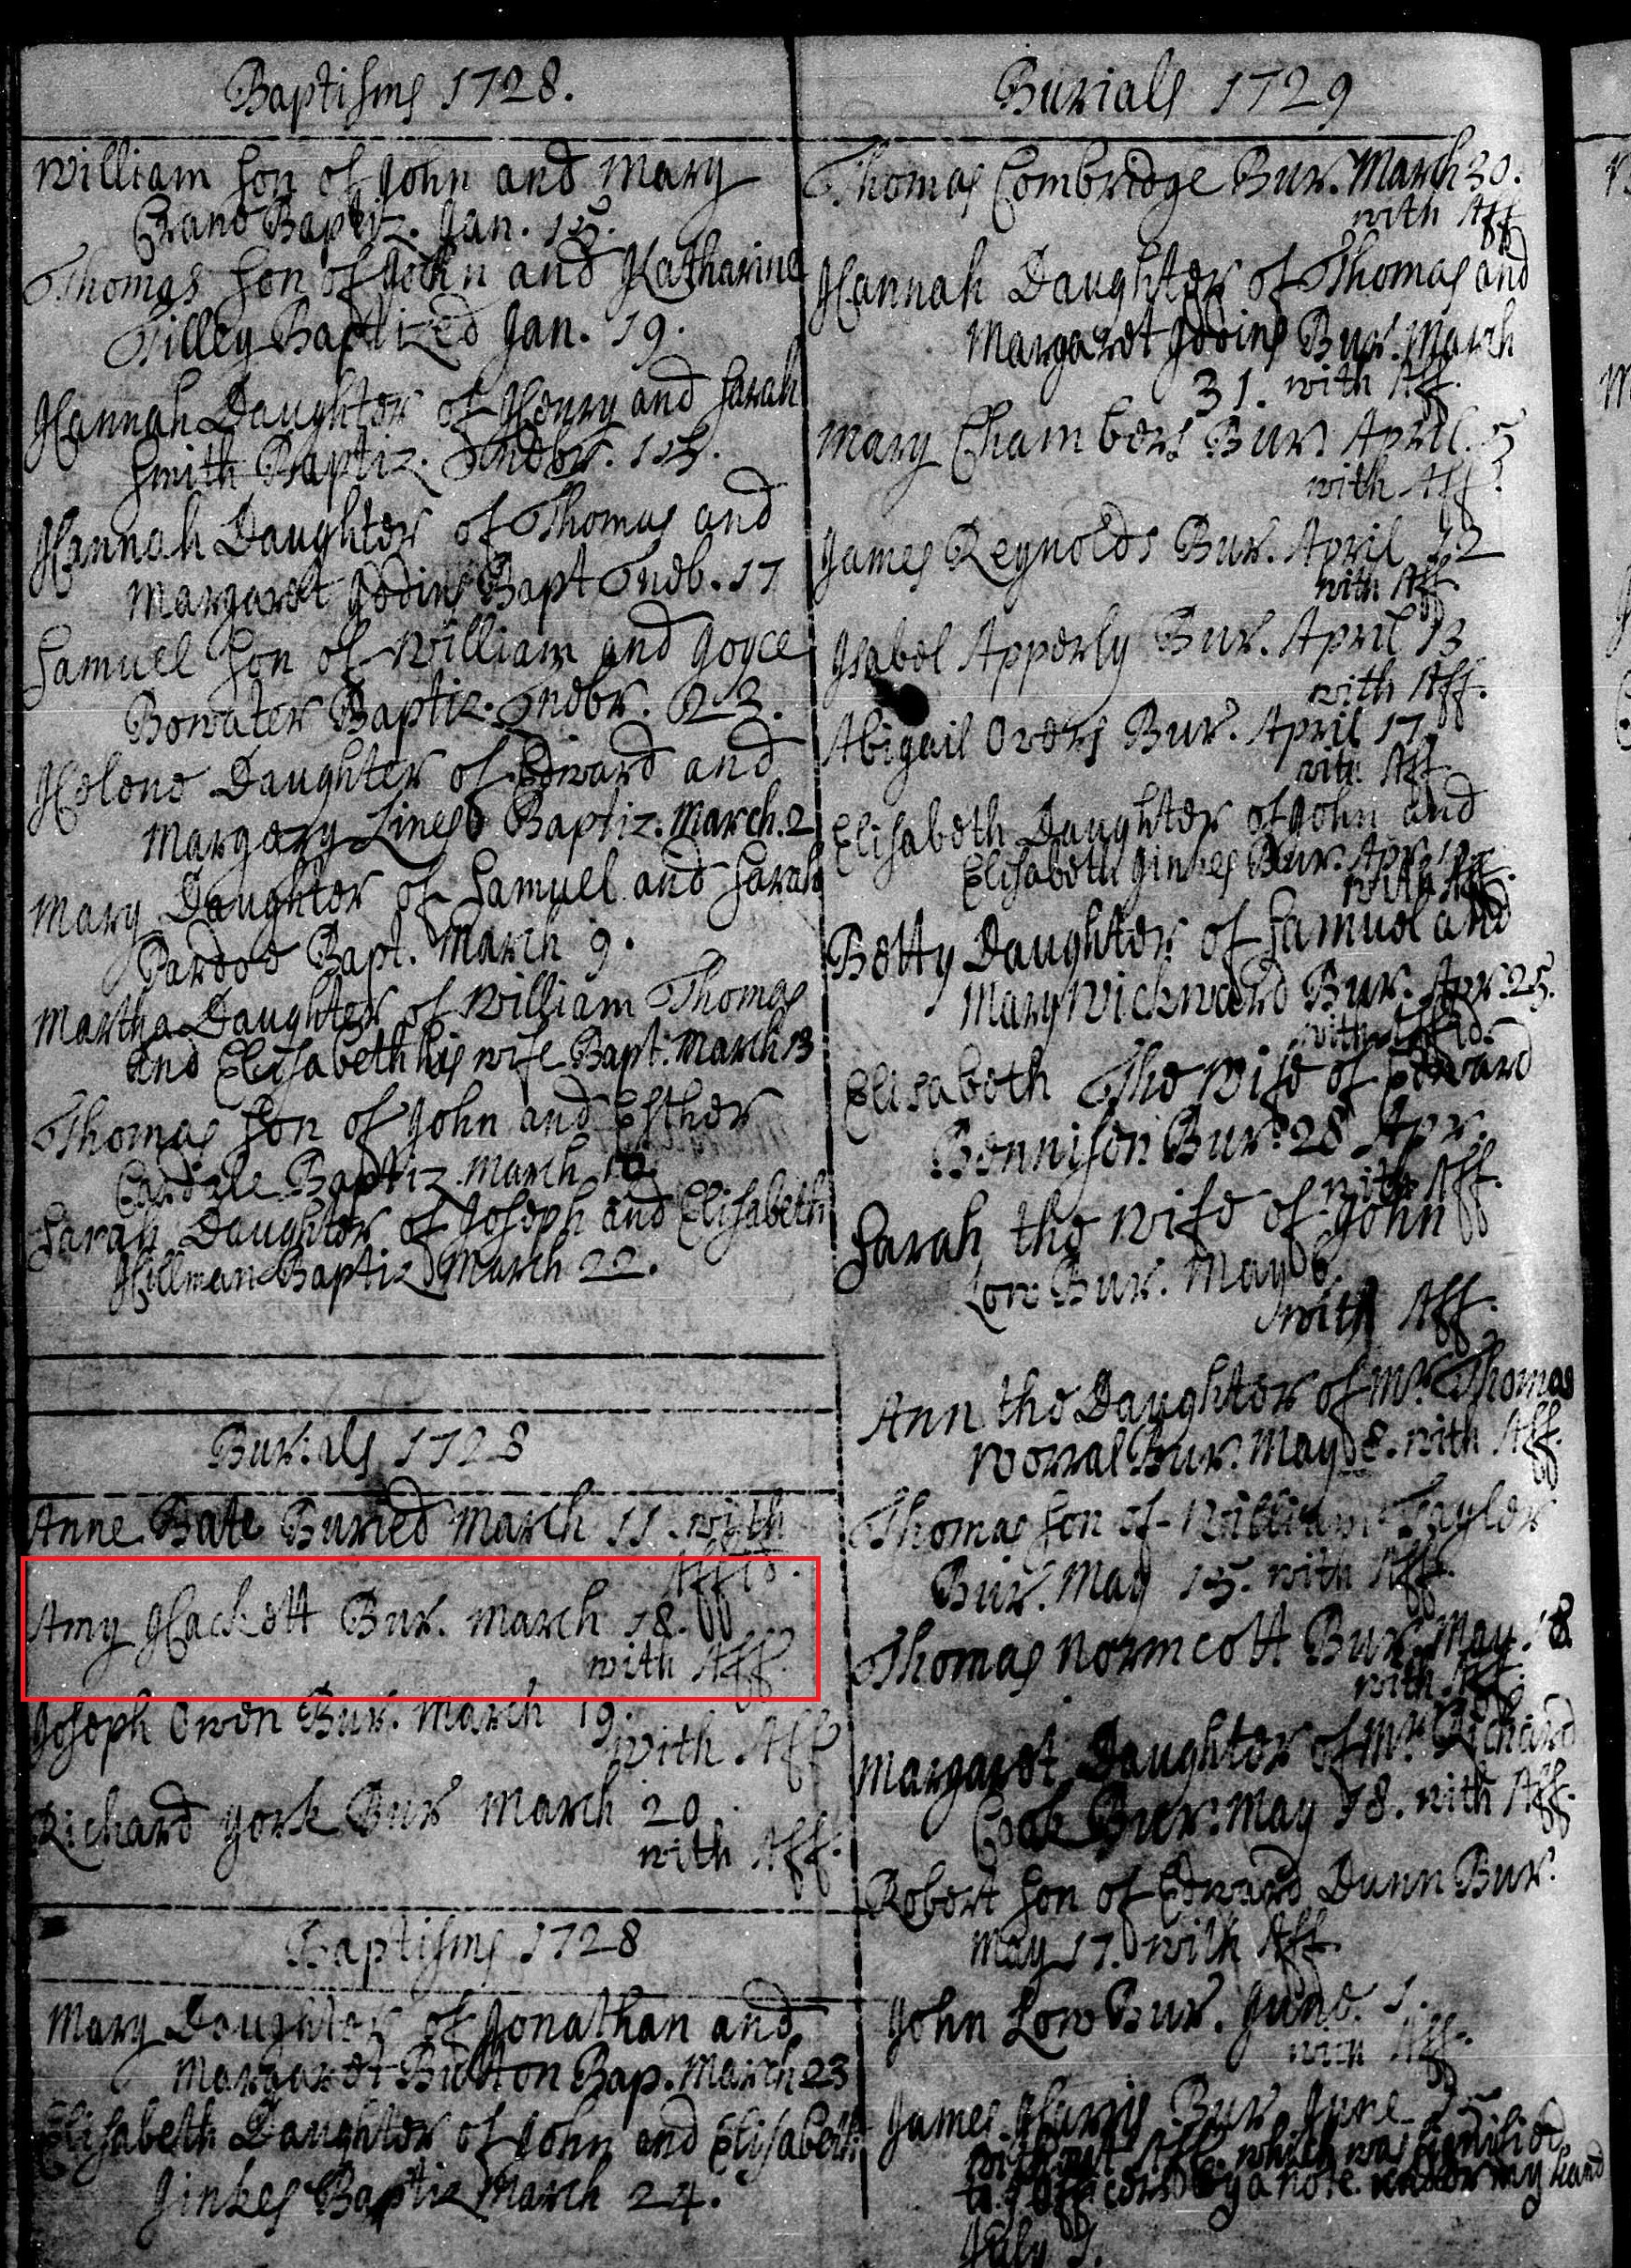 Baptisms 1728.
William Son of John and Mary
Crano Baptiz. Jan. 15.
Thomas Son of John and Katharine
Tilley Baptized Jan. 19.
Hannah Daughter of Henry and Sarah
Smith Baptiz. 15.
Hannah Daughter of Thomas and
Margaret Bapt 17
Samuel Son of William and Joyce
Bowater Baptiz. 23.
Helene Daughter of Edward and
Margery Lines Baptiz. March. 2
Mary Daughter of Samuel and Sarah
Pardoe Bapt. March 9.
Martha Daughter of William Thomas
and Elisabeth his wife Bapt. March 13
Thomas Son of John and Esther
Cardale Baptiz March
Sarah Daughter of Joseph and Elisabeth
Hillman Baptiz March 22.
Burials 1728
Anne Bate Buried March 11. with
Affid.
Amy Hackett Bur. March 18.
with Aff.
Joseph Owen Bur. March 19.
with Aff
Richard York Bur March 20.
with Aff.
Baptisms 1728
Mary Daughter of Jonathan and
Margaret Bap. March 23
Elisabeth Daughter of John and Elisabeth
Jinkes Baptiz March 24.
Burials 1729
Thomas Combridge Bur. March 30.
with Aff
Hannah Daughter of Thomas and
Margaret Bur. March
31. with Aff.
Mary Chambers Bur. April. 5
with Aff.
James Reynolds Bur. April 12
with Aff.
Isabel Apperly Bur. April 13
with Aff.
Abigail Bur. April 17.
with Aff.
Elisabeth Daughter of John and
Elisabeth Jinkes Bur. Apr.
with Aff.
Betty Daughter of Samuel and
Mary Wickward Bur. Apr. 25.
with Affid.
Elisabeth The Wife of Edward
Bennison Bur. 28 Apr.
with Aff.
Sarah the Wife of John
Low Bur. May 6.
with Aff.
Ann the Daughter of Mr. Thomas
Worral Bur. May 8. with Aff.
Thomas Son of William Taylor
Bur. May 15. with Aff.
Thomas Normcott Bur. May. 18
with Aff.
Margaret Daughter of Mr. Richard
Cook Bur. May 18. with Aff.
Robert Son of Edward Dunn Bur.
May 17. with Aff.
John Low Bur. June. 1.
with Aff.
James Harris Bur June
without Aff. which was signified
to by a note under my hand
July